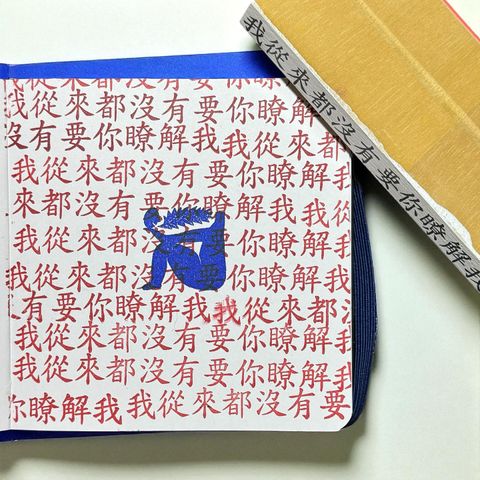 我從來都沒有要你瞭解
沒有要你瞭解我我從來都
我從來都沒有要你瞭解我
來都沒有要你瞭解我我
我從來都沒有要你瞭解我
我從來都沒有要你瞭解我
有要你瞭解我我從來都
我從來都沒有要你瞭解我
我從來都沒有要你瞭解我
你瞭解我我從來都沒有要
我從來都沒有要你瞭解我